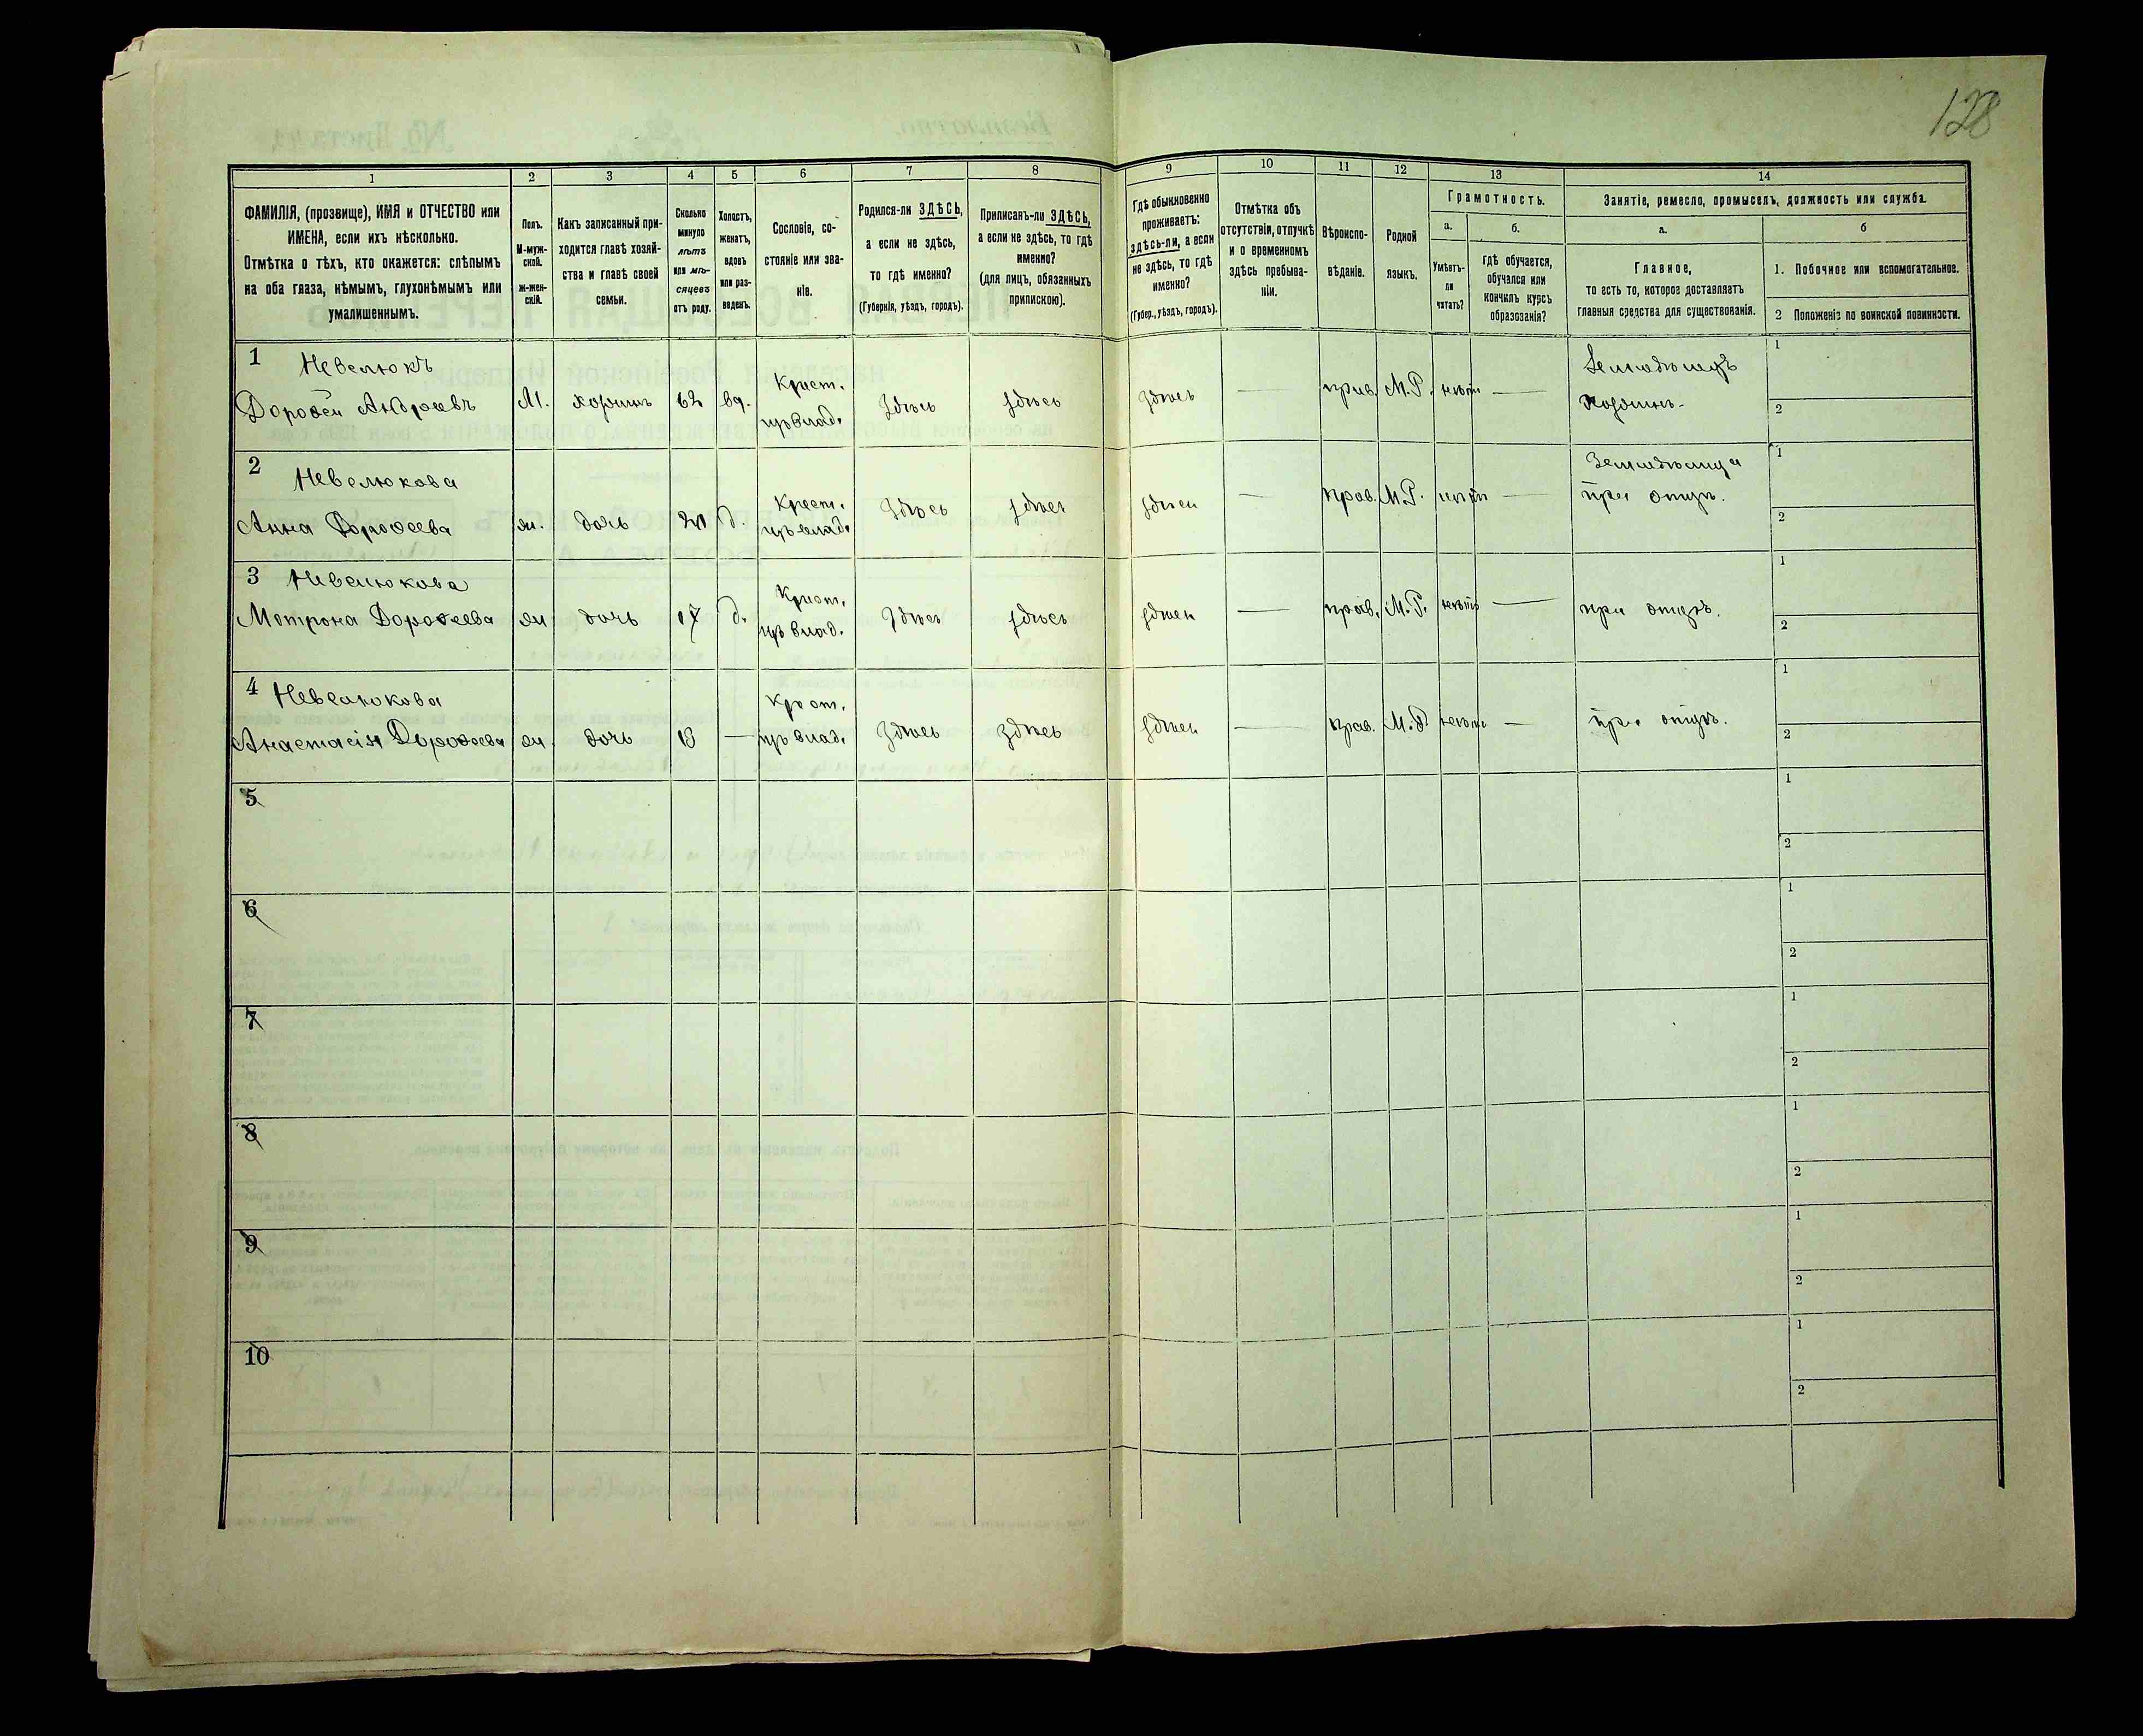 128
1
2
3
4
5
6
7
8
9
10
11
12
13
14
ФАМИЛІЯ, (прозвище), ИМЯ и ОТЧЕСТВО или
ИМЕНА, если ихъ нѣсколько.
Отмѣтка о тѣхъ, кто окажется: слѣпымъ
на оба глаза, нѣмымъ, глухонѣмымъ или
умалишеннымъ.
Полъ.
М-муж-
ской.
ж-жен-
скій.
Какъ записанный при-
ходится главѣ хозяй-
ства и главѣ своей
семьи.
Сколько
минуло
лѣтъ
или мѣ-
сяцевъ
отъ роду.
Холостъ,
женатъ,
вдовъ
или раз-
веденъ.
Сословіе, со-
стояніе или зва-
ніе.
Родился-ли ЗДѢСЬ,
а если не здѣсь,
то гдѣ именно?
(Губернія, уѣздъ, городъ).
Приписанъ-ли ЗДѢСЬ,
а если не здѣсь, то гдѣ
именно?
(для лицъ, обязанныхъ
припискою).
Гдѣ обыкновенно
проживаетъ:
здѣсь-ли, а если
не здѣсь, то гдѣ
именно?
(Губер., уѣздъ, городъ).
Отмѣтка объ
отсутствіи, отлучкѣ
и о временномъ
здѣсь пребыва-
ніи.
Вѣроиспо-
вѣданіе.
Родной
языкъ.
Грамотность.
а.
б.
Умѣетъ-
ли
читать?
гдѣ обучается,
обучался или
кончилъ курсъ
образованія?
Занятіе, ремесло, промыселъ, должность или служба.
а.
б
Главное,
то есть то, которое доставляетъ
главныя средства для существованія.
1. Побочное или вспомогательное.
2 Положеніе по воинской повинности.
1 Невелюкъ
Дорофей Андреевъ М. хозяинъ 62 вд. Крест. изъ влад. Здѣсь здѣсь здѣсь — прав. М.Р. нѣтъ — Земледѣлецъ хозяинъ. 1 2
2 Невелюкова
Анна Дорофеева ж. дочь д. Крест. изъ влад. Здѣсь здѣсь здѣсь — прав. М.Р. нѣтъ — Земледѣлица при отцѣ. 1 2
3 Невелюкова
Мотрона Дорофеева ж дочь 17 д. Крест. изъ влад. Здѣсь здѣсь здѣсь — прав. М.Р. нѣтъ — при отцѣ. 1 2
4 Невелюкова
Анастасія Дорофеева ж. дочь 13 — Крест. изъ влад. Здѣсь здѣсь здѣсь — прав. М.Р. нѣтъ — при отцѣ. 1 2
5 1 2
6 1 2
7 1 2
8 1 2
9 1 2
10 1 2